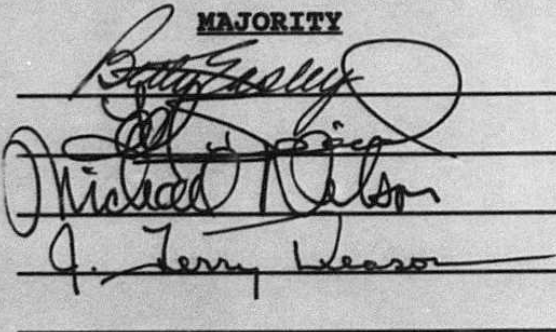 MAJORITY
Betty Easley
Michael Nelson
J. Terry Deason